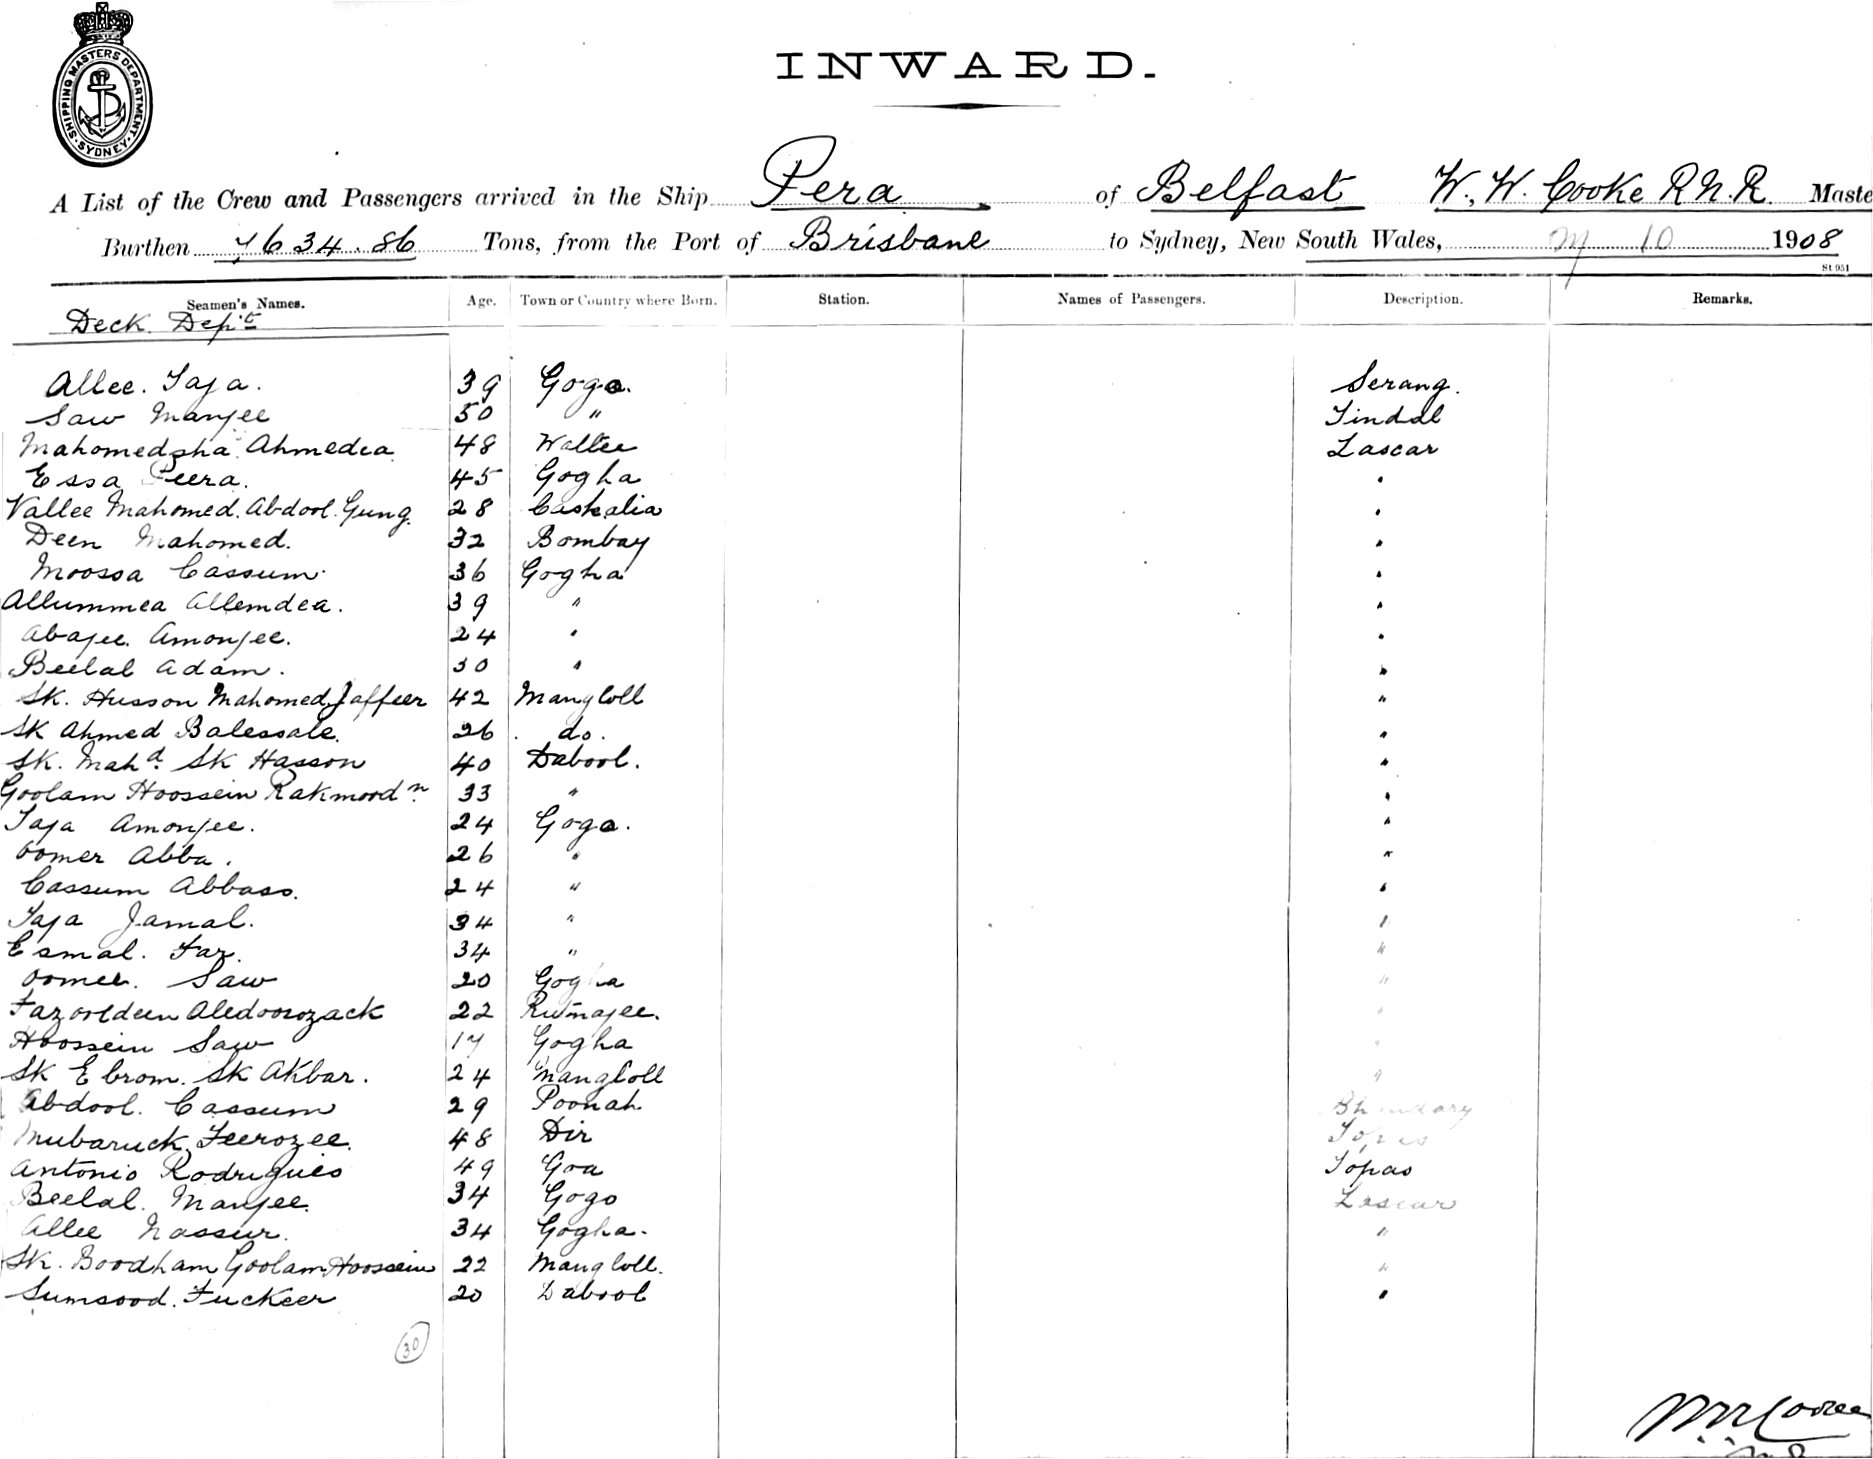 SHIPPING MASTERS DEPARTMENT. SYDNEY.
INWARD.
A List of the Crew and Passengers arrived in the Ship Pera of Belfast W. W. Cooke R.N.R. Maste
Burthen 7634.86 Tons, from the Port of Brisbane to Sydney, New South Wales, 10 1908
St 951
Seamen's Names. Age. Town or Country where Born. Station. Names of Passengers. Description. Remarks.
Deck Dep't
Allee. Taja. 39 Gogo. Serang.
Saw Manjee 50 " Tindal
Mahomedsha Ahmedea 48 Wattee Lascar
Essa Peera. 45 Gogha "
Vallee Mahomed. Abdool Gung. 28 Caskalia "
Deen Mahomed. 32 Bombay "
Moossa Cassum. 36 Gogha "
Allummea Allemdea. 39 " "
Abajee. Amonjee. 24 " "
Beelal Adam. 30 " "
Sk. Husson Mahomed Jaffeer 42 Mangloll "
Sk Ahmed Balessale. 26 do. "
Sk. Mahd. Sk Hasson 40 Dabool. "
Goolam Hoossein Rakmoodn. 33 " "
Taja Amonjee. 24 Gogo. "
Oomer Abba. 26 " "
Cassum Abbass. 24 " "
Taja Jamal. 34 " "
Esmal. Faz. 34 " "
Oomer. Saw 20 Gogha "
Fazooldeen Aledoorozack 22 Rutnajee. "
Hoossein Saw 17 Gogha "
Sk Ebrom. Sk Akbar. 24 Mangloll "
Abdool. Cassum 29 Poonah Bhandary
Mubaruck Feerozee. 48 Dir Topas
Antonio Rodrigues 49 Goa Topas
Beelal. Manjee. 34 Gogo Lascar
Allee Nassur. 34 Gogha. "
Sk. Boodham Goolam Hoossein 22 Mangloll. "
Sumsood. Fuckeer 20 Dabool "
30